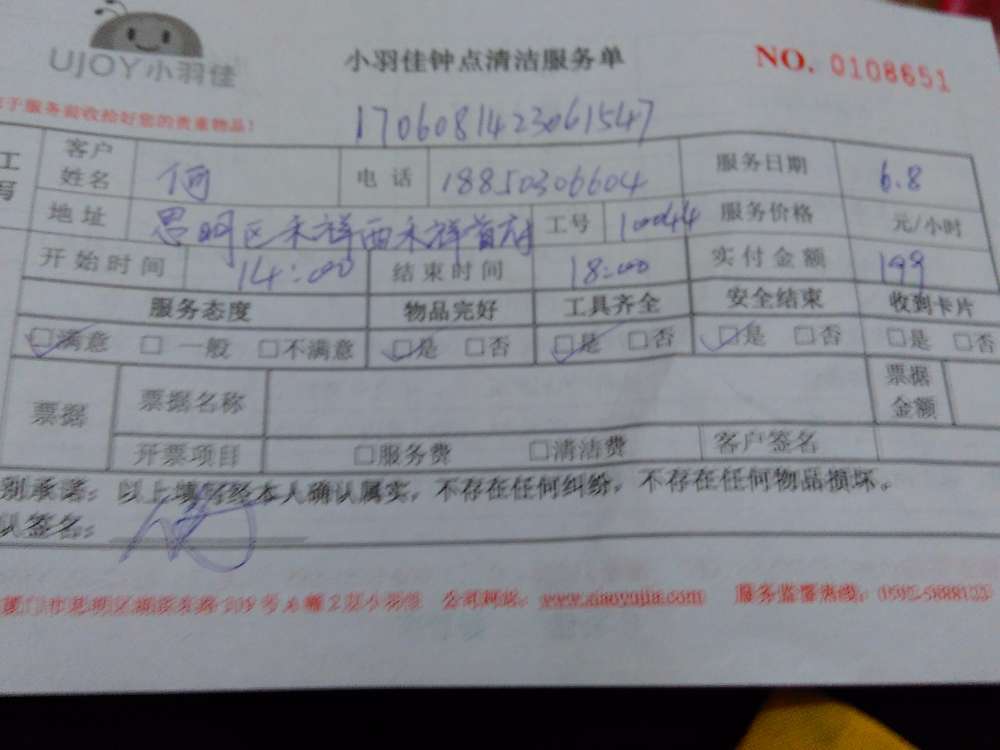 UJOY小羽佳 小羽佳钟点清洁服务单 NO. 0108651
于服务前收拾好您的贵重物品!
1706081423061547
工 客户姓名 何 电话 18850306604 服务日期 6.8
写 地址 思明区禾祥西禾祥首府 工号 10044 服务价格 元/小时
开始时间 14:00 结束时间 18:00 实付金额 199
服务态度 物品完好 工具齐全 安全结束 收到卡片
☑满意 □一般 □不满意 ☑是 □否 ☑是 □否 ☑是 □否 □是 □否
票据 票据名称 票据金额
开票项目 □服务费 □清洁费 客户签名
别承诺:以上填写经本人确认属实,不存在任何纠纷,不存在任何物品损坏。
认签名:
厦门市思明区湖滨东路 2层小羽佳 公司网站:www.xiaoyujia.com 服务监督热线:0592-5888123